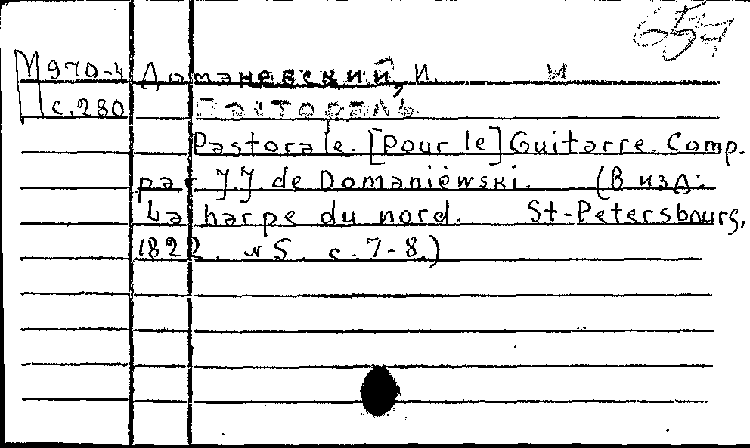 657
М 970-4 Доманевский, И. И
с. 280 Пастораль
Pastorale. [Pour le] Guitarre. Comp.
par J.J. de Domaniewski. (В изд:
La harpe du nord. St-Petersbourg,
1822. N 5. с. 7-8.)